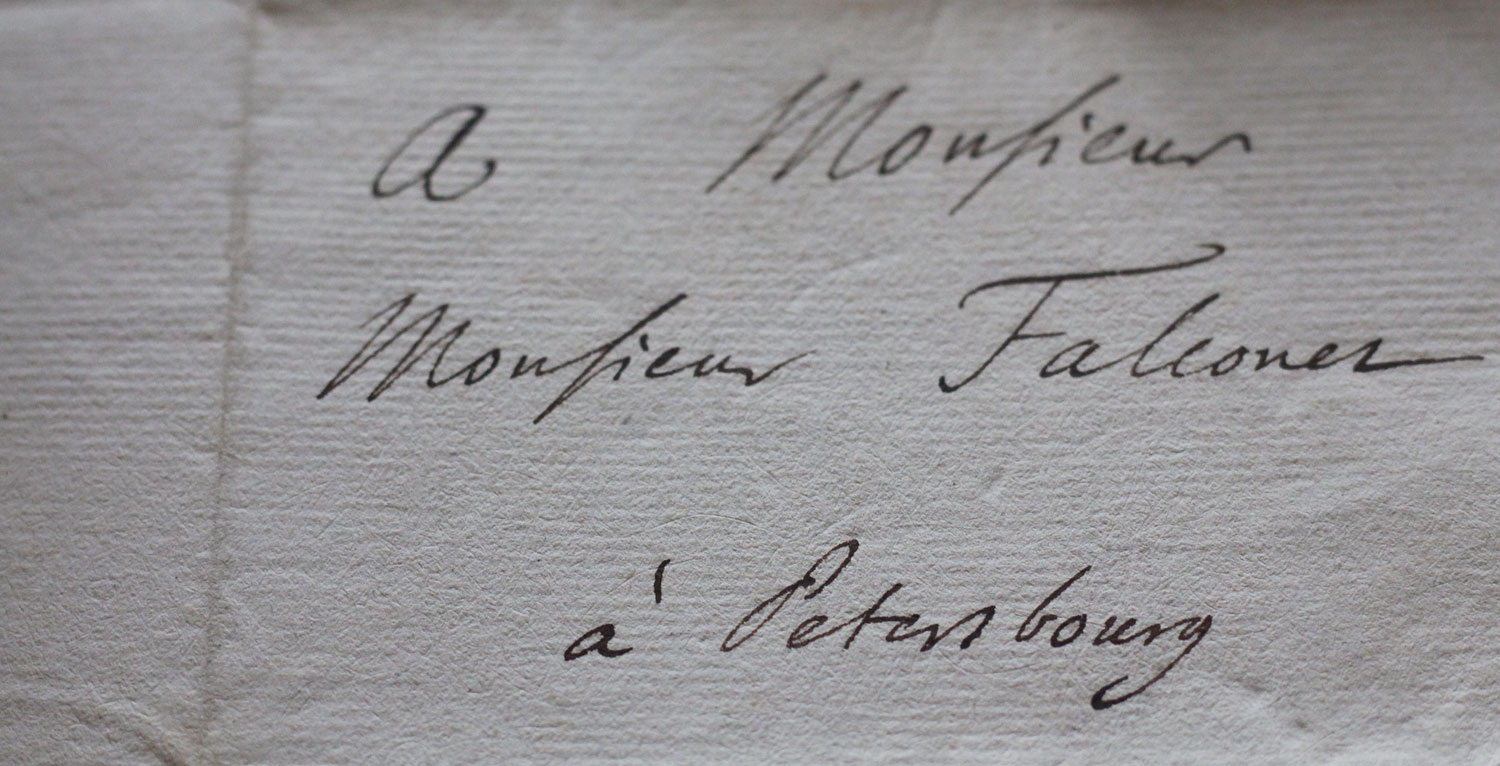 A Monsieur
Monsieur Falconet
à Petersbourg